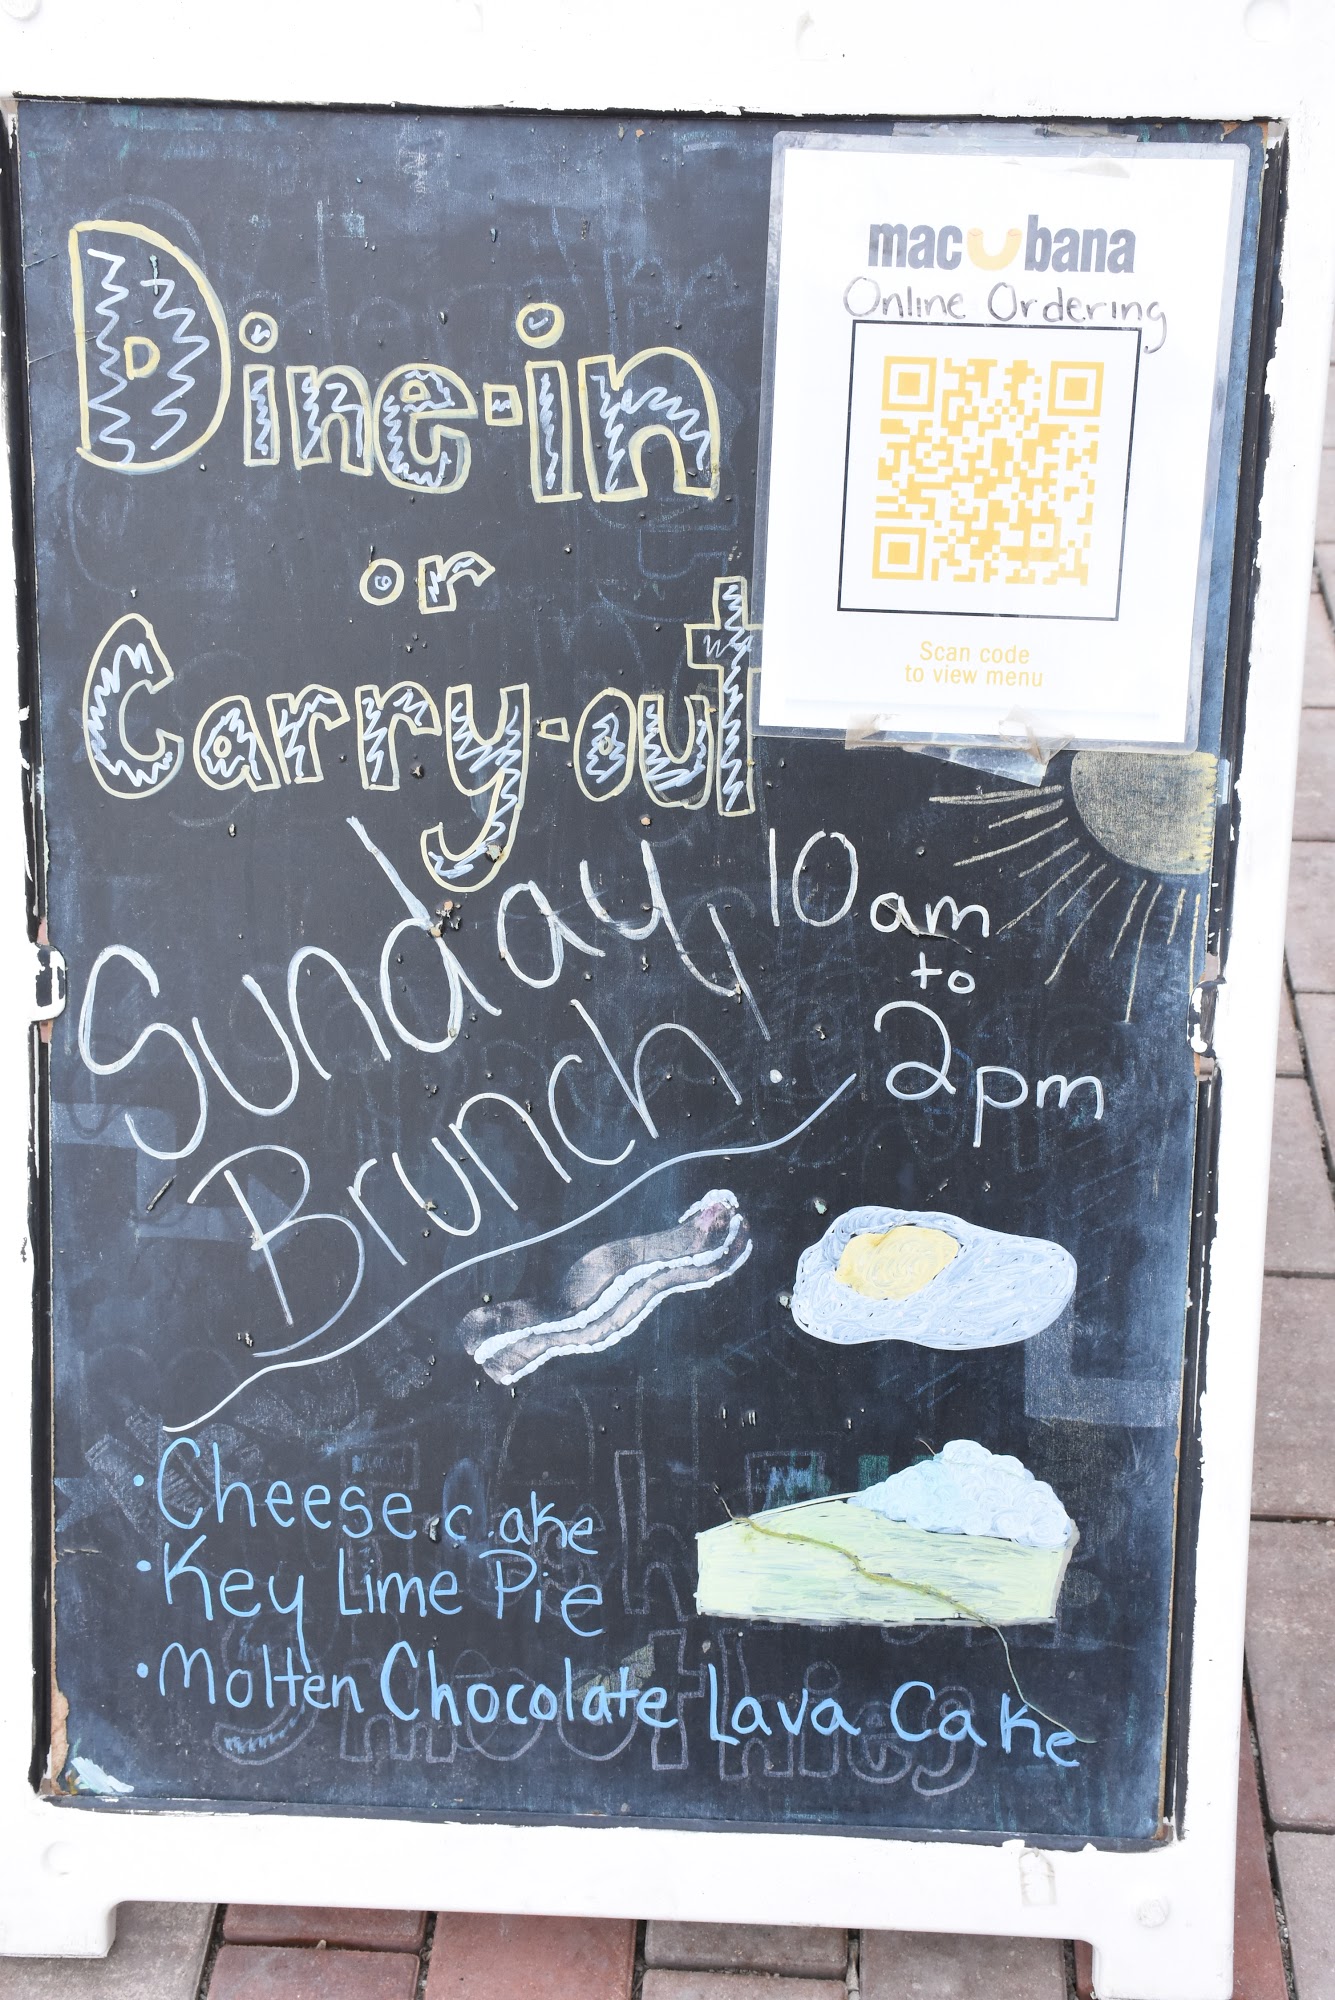 Dine-in
or
Carry-out
macUbana
Online Ordering
Scan code
to view menu
Sunday
Brunch!
10am
to
2pm
• Cheese cake
• Key Lime Pie
• Molten Chocolate Lava Cake